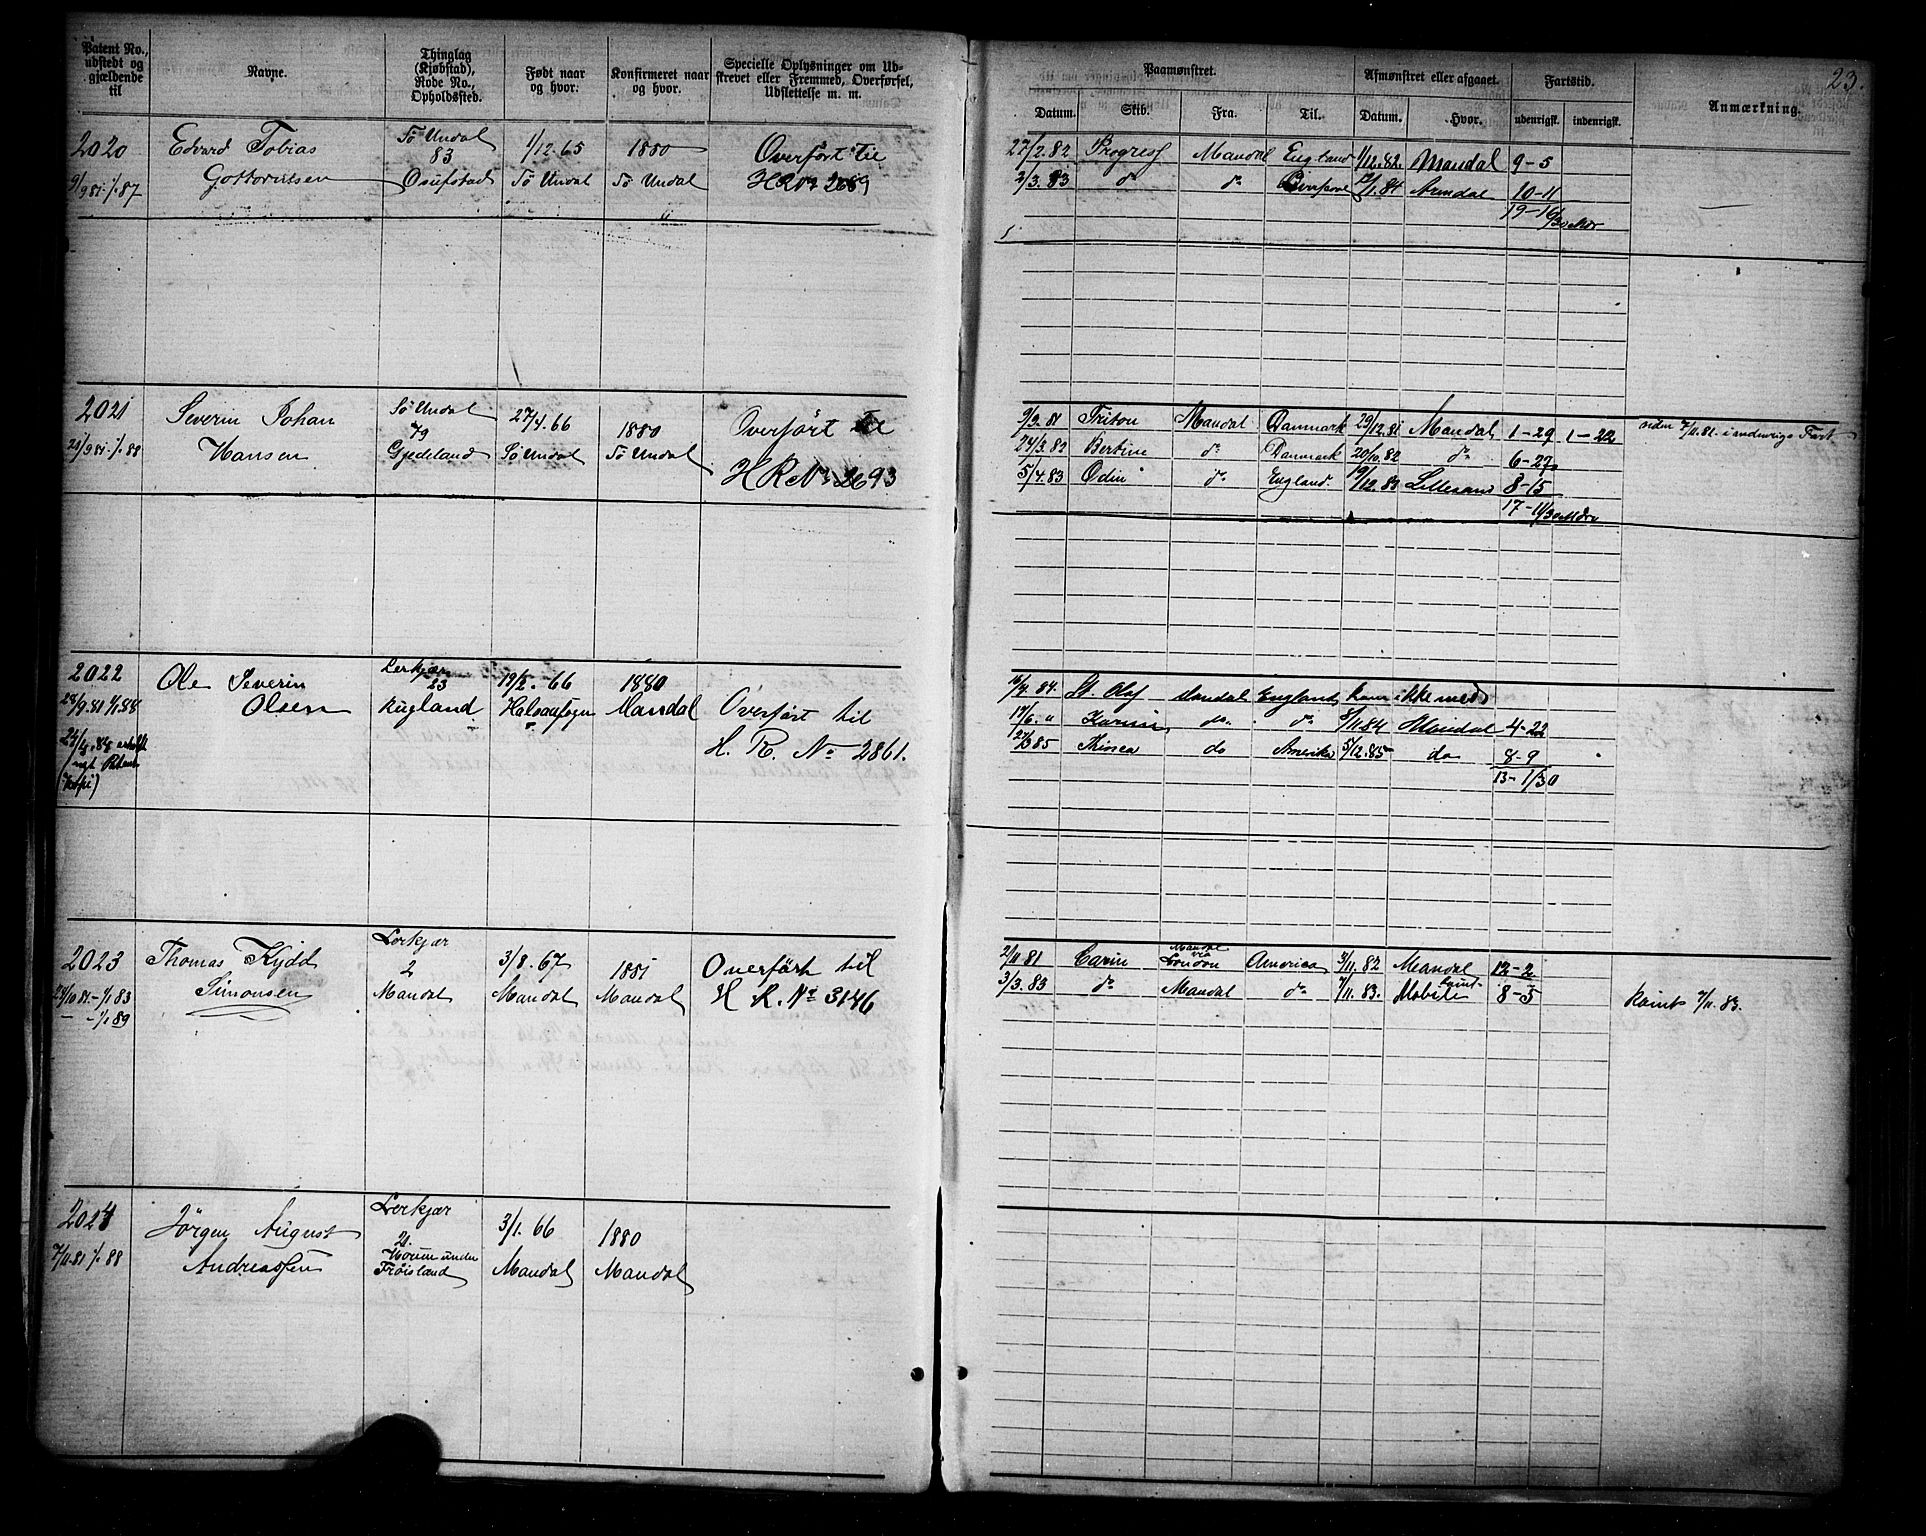 23.
Patent No., udstedt og gjældende til
Navne.
Thinglag (Kjøbstad), Rode No., Opholdssted.
Født naar og hvor.
Konfirmeret naar og hvor.
Specielle Oplysninger om Udskrevet eller Fremmed, Overførsel, Udslettelse m. m.
Paamønstret.
Afmønstret eller afgaaet.
Fartstid.
Anmærkning.
Datum. Skib. Fra. Til. Datum. Hvor. udenrigsk. indenrigsk.
2020 Edvard Tobias Sö Undal 1/12.65 1880 Overført til
83
9/9 81-1/1 87 Sö Undal Sö Undal H R No 2689
27/2.82 Progress Mandal England 1/12.82. Mandal 9-5
2/3.83 do do 12/1.84 Arendal 10-11
19-16/30 Mdr
2021 Severin Johan Sö Undal 27/4.66 1880 Overført til
79
Hansen Gjedeland Sö Undal Sö Undal H R No 2693
9/9.81 Triton Mandal Danmark 29/12.81 Mandal 1-29 1-22 siden 7/11.81. i indenrigs Fart
24/3.82 Bertine do Danmark 20/10.82 do 6-27
5/4.83 Odin do England. 19/12.83 Lillesand 8-15
17-11/30 Mdr
2022 Ole Severin Lerkjær 1880
23
24/9.81 1/1.88 Olsen Rugland Halsaasogn Mandal Overført til
H. R. No 2861.
16/4.84. St. Olaf Mandal England kom ikke med
17/6. " do. do 8/11.84 Mandal 4-22
27/6 85 do Amerika 5/12.85 do 8-9
13-1/30
2023 Thomas Kydd Lerkjær 3/8.67 1881 Overført til
2
29/10 81-1/1 83 Simonsen Mandal Mandal Mandal H. R. No 3146
- -1/1 89
2/11 81 Carin Mandal via London America 3/11.82 Mandal 12-2
3/3.83 do Mandal do 7/11.83. Mobile 8-5 Rømt 7/11.83.
2024 Jörgen August Lerkjær 3/1.66 1880
21.
7/11.81 1/1 88 Andreassen under Fröisland Mandal Mandal